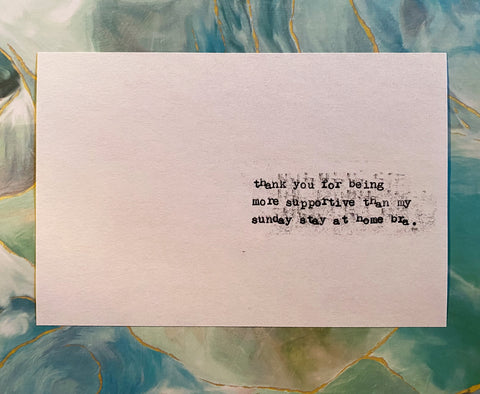 thank you for being
more supportive than my
sunday stay at home bra.